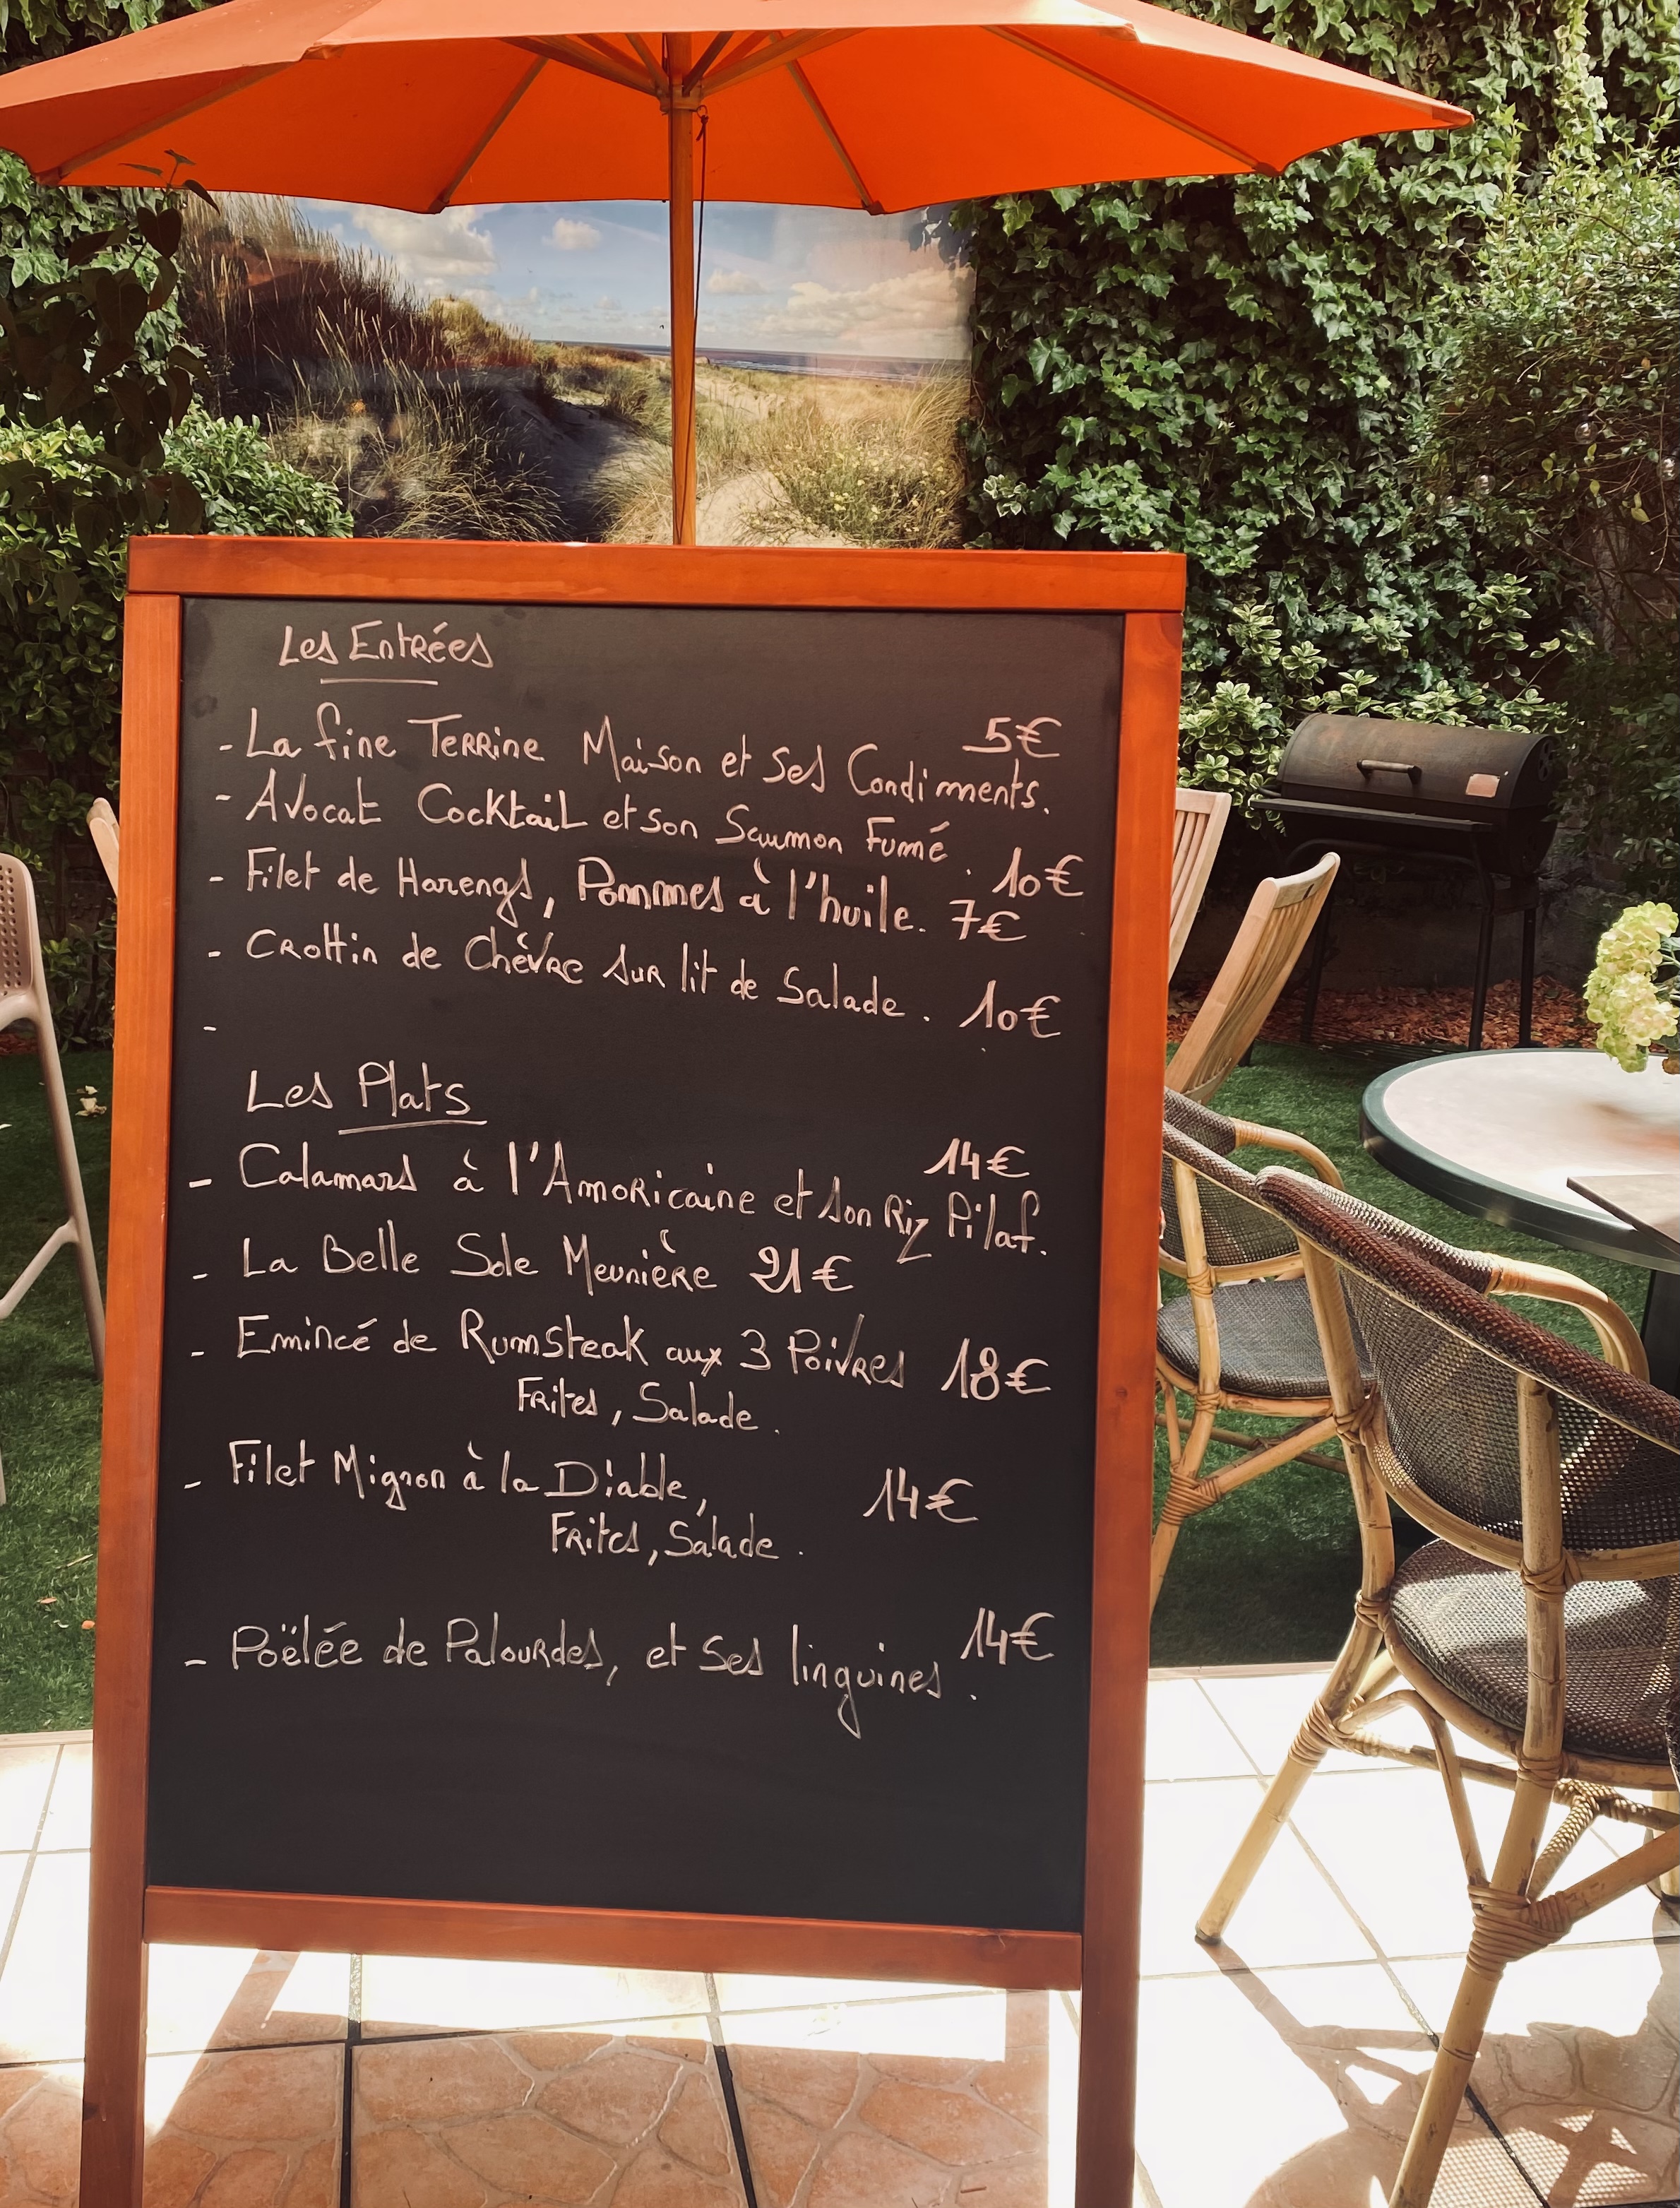 Les Entrées
- La fine Terrine Maison et ses Condiments. 5€
- Avocat Cocktail et son Saumon Fumé. 10€
- Filet de Harengs, Pommes à l'huile. 7€
- Crottin de Chèvre sur lit de Salade. 10€
-
Les Plats
- Calamars à l'Amoricaine et son Riz Pilaf. 14€
- La Belle Sole Meunière 21€
- Emincé de Rumsteak aux 3 Poivres 18€
Frites, Salade.
- Filet Mignon à la Diable, 14€
Frites, Salade.
- Poëlée de Palourdes, et ses linguines. 14€